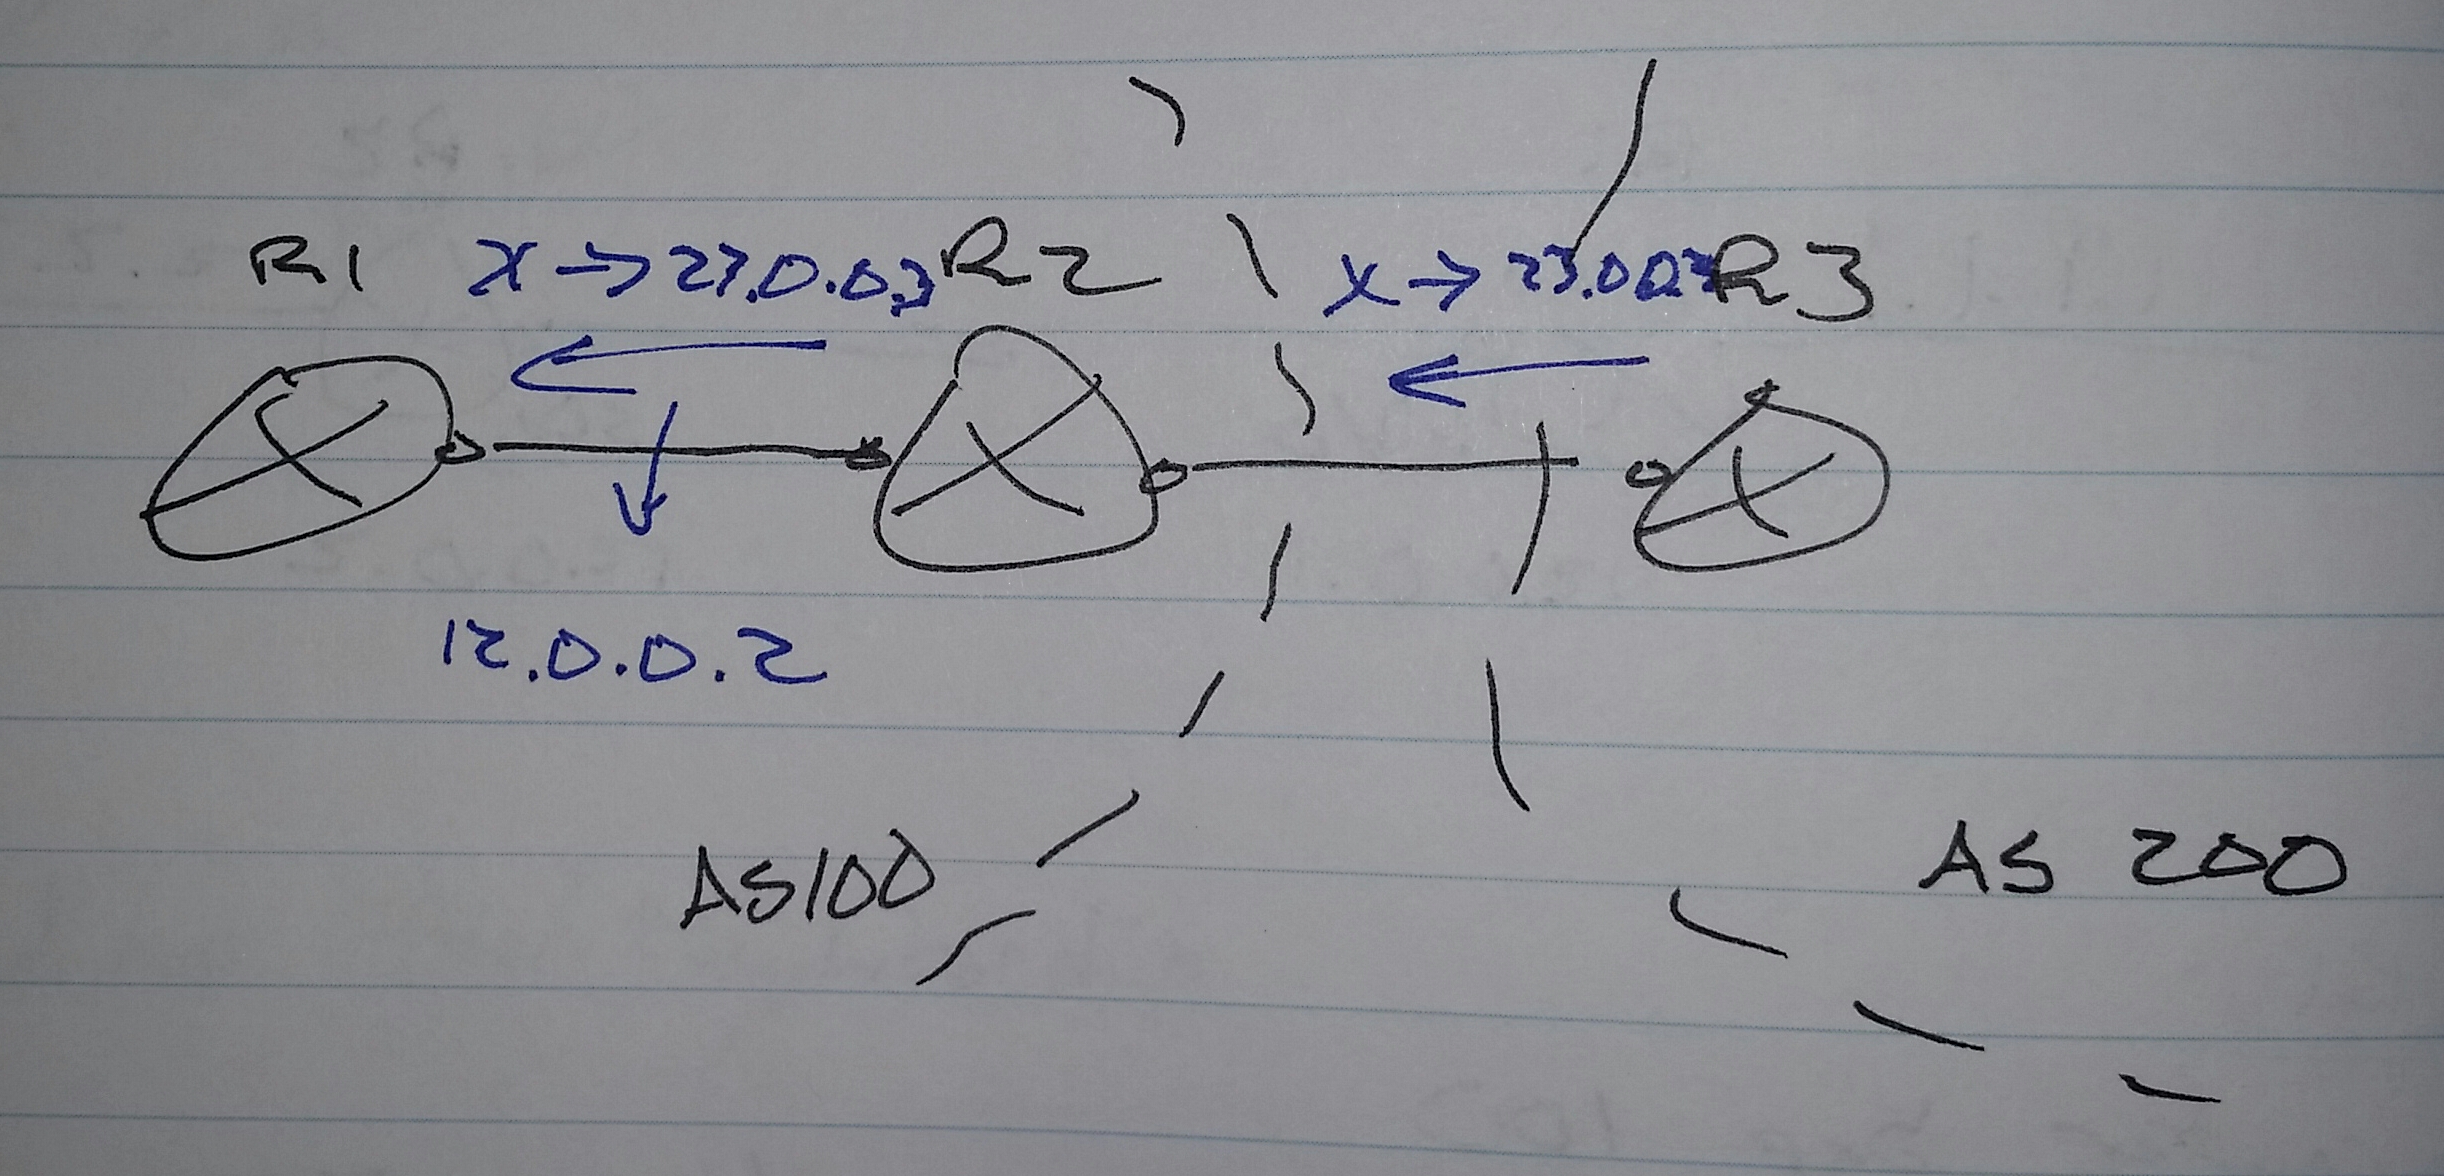 R1 X → 23.0.0.3 R2 X → 23.0.0.3 R3
12.0.0.2
AS100 AS 200